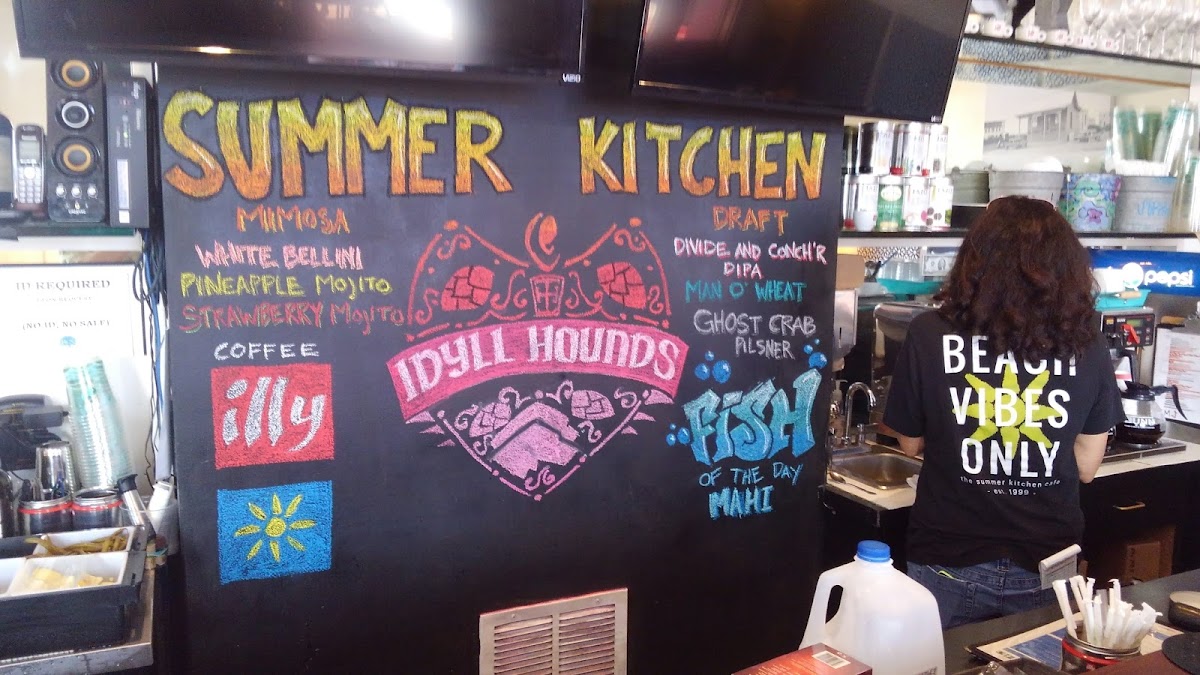 SUMMER KITCHEN
MIMOSA
WHITE BELLINI
PINEAPPLE MOJITO
STRAWBERRY MOJITO
COFFEE
illy
IDYLL HOUNDS
DRAFT
DIVIDE AND CONCH'R
DIPA
MAN O' WHEAT
GHOST CRAB
PILSNER
FISH
OF THE DAY
MAHI
ID REQUIRED
(NO ID, NO SALE!)
VIZIO
pepsi
BEACH
VIBES
ONLY
the summer kitchen cafe
- est. 1999 -